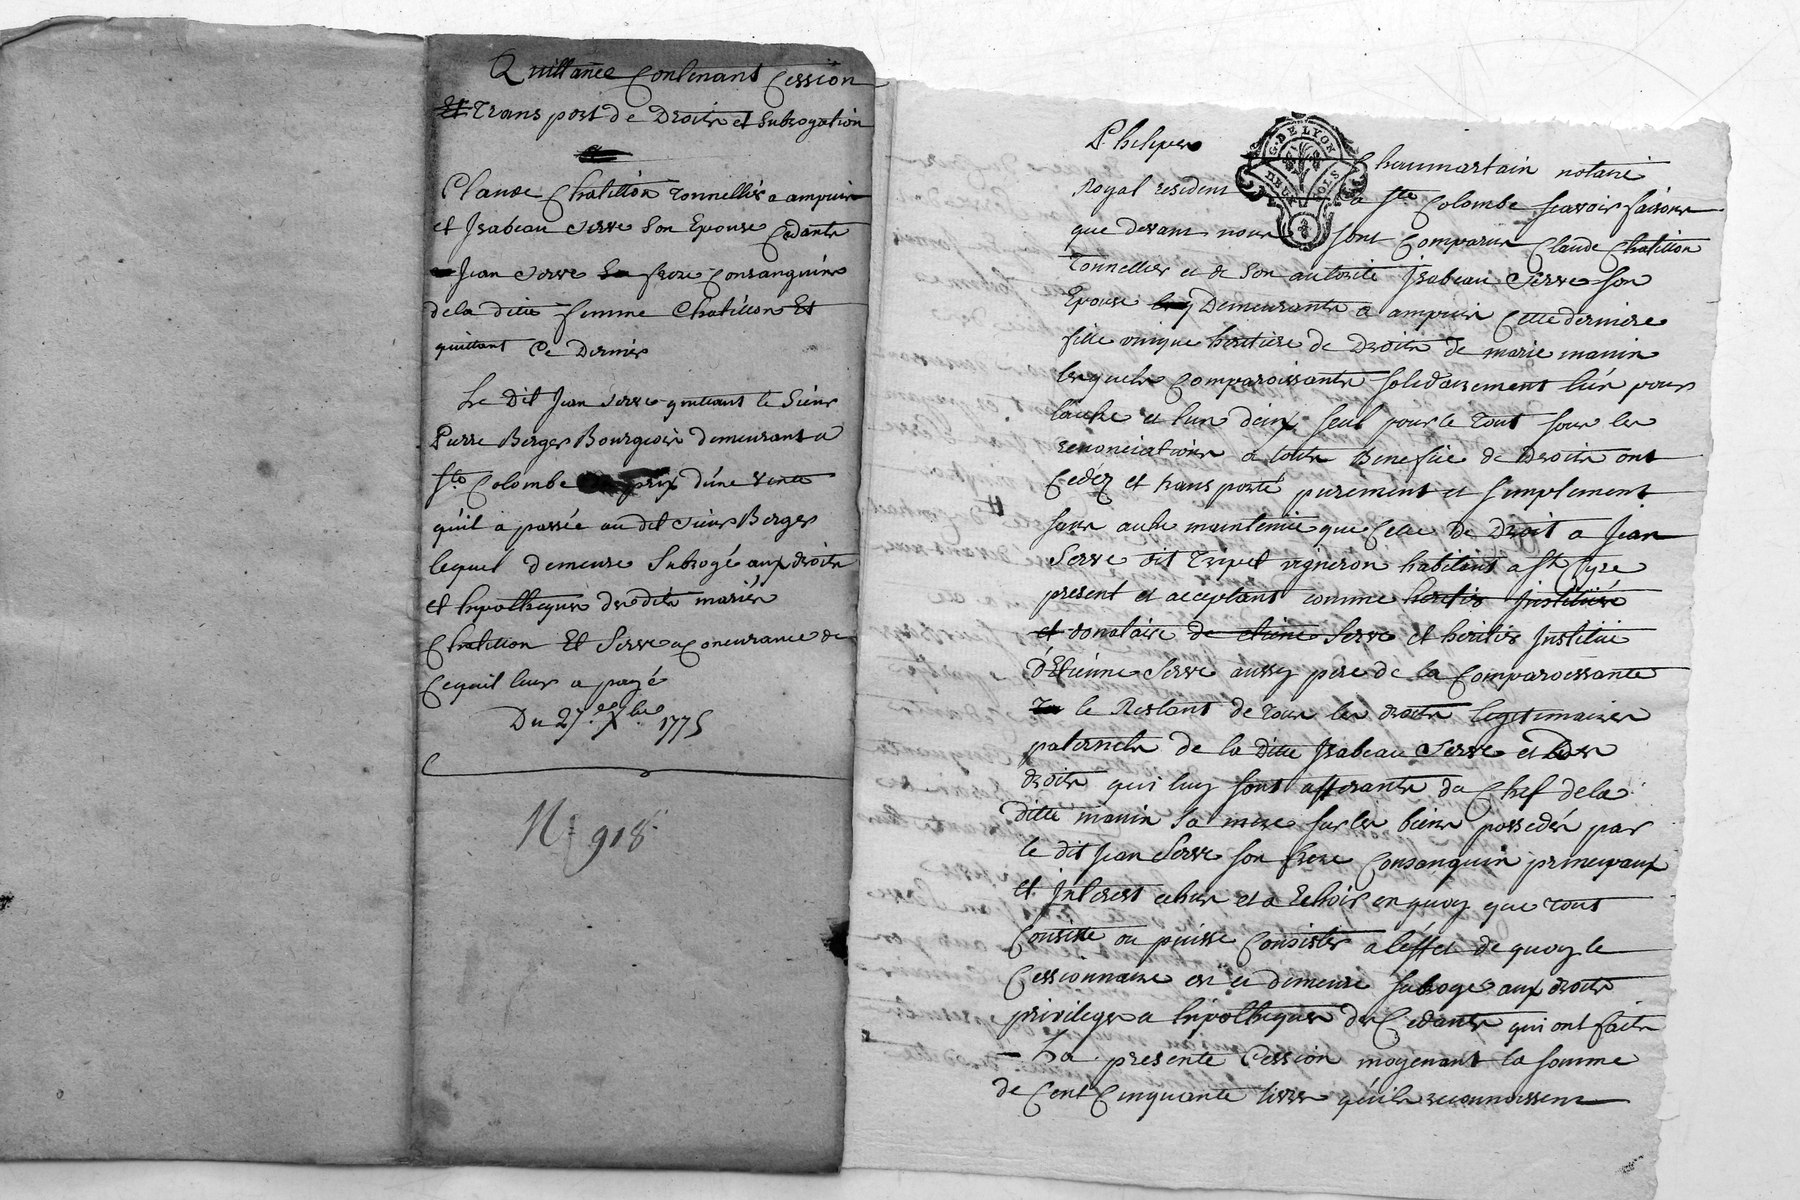 Quittance Contenant Cession
Et Transport de Droits et Subrogation
Claude Chatillon Tonnellier a ampuis
et Isabeau Serve Son Epouse Cedants
a Jean Serve frere Consanguins
dela ditte femme Chatillon Et
quittant Ce Dernier
Le Dit Jean Serve quittant le Sieur
Pierre Berger Bourgeois demeurant a
Ste Colombe prix d'une vente
qu'il a passée au dit Sieur Berger
lequel demeure Subrogé aux droits
et hipotheques desdits mariés
Chatillon Et Serve a Concurance de
Cequil leur a payé
Du 27e 7bre 1775
N° 918
Philipes Chaumartain notaire
G. DE LYON
DEUX SOLS
Royal resident a Ste Colombe scavoir faisons
que devant nous sont Comparus Claude Chatillon
Tonnellier et de Son autorité Isabeau Serve son
Epouse Demeurants a ampuis Cette derniere
fille unique heritiere de Droits de marie manin
lesquels Comparoissants solidairement l'un pour
l'autre et l'un deux seul pour le Tout sous les
renonciations a touts Benefice de Droits ont
Cedéz et transporté purement et simplement
sans autre maintenüe que Celle de Droit a Jean
Serve dit Tripel vigneron habitant a St Cyre
present et acceptant comme heritier Institüé
et donataire de etiene Serve et heritier Institüé
d'Etienne Serve aussy pere de la Comparoissante
le Restant de Tous les droits legitimaires
paternels de la ditte Isabeau Serve et Les
droits qui luy sont afferants du Chef dela
ditte manin Sa mere sur les biens possedés par
le dit Jean Serve son frere Consanguin principaux
et Interest echus et a Echoir en quoy que Tout
Consiste ou puisse Consister a l'effet de quoy le
Cessionnaire est et demeure subrogé aux droits
privileges a hipotheques des Cedants qui ont fait
La presente Cession moyenant la somme
de Cent Cinquante livres qu'ils reconnoissent